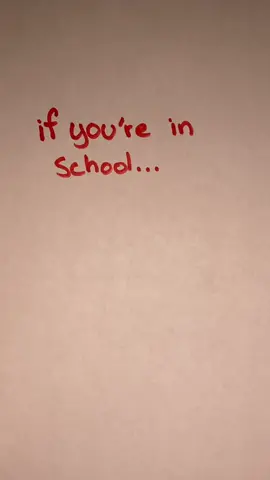 if you're in
school...